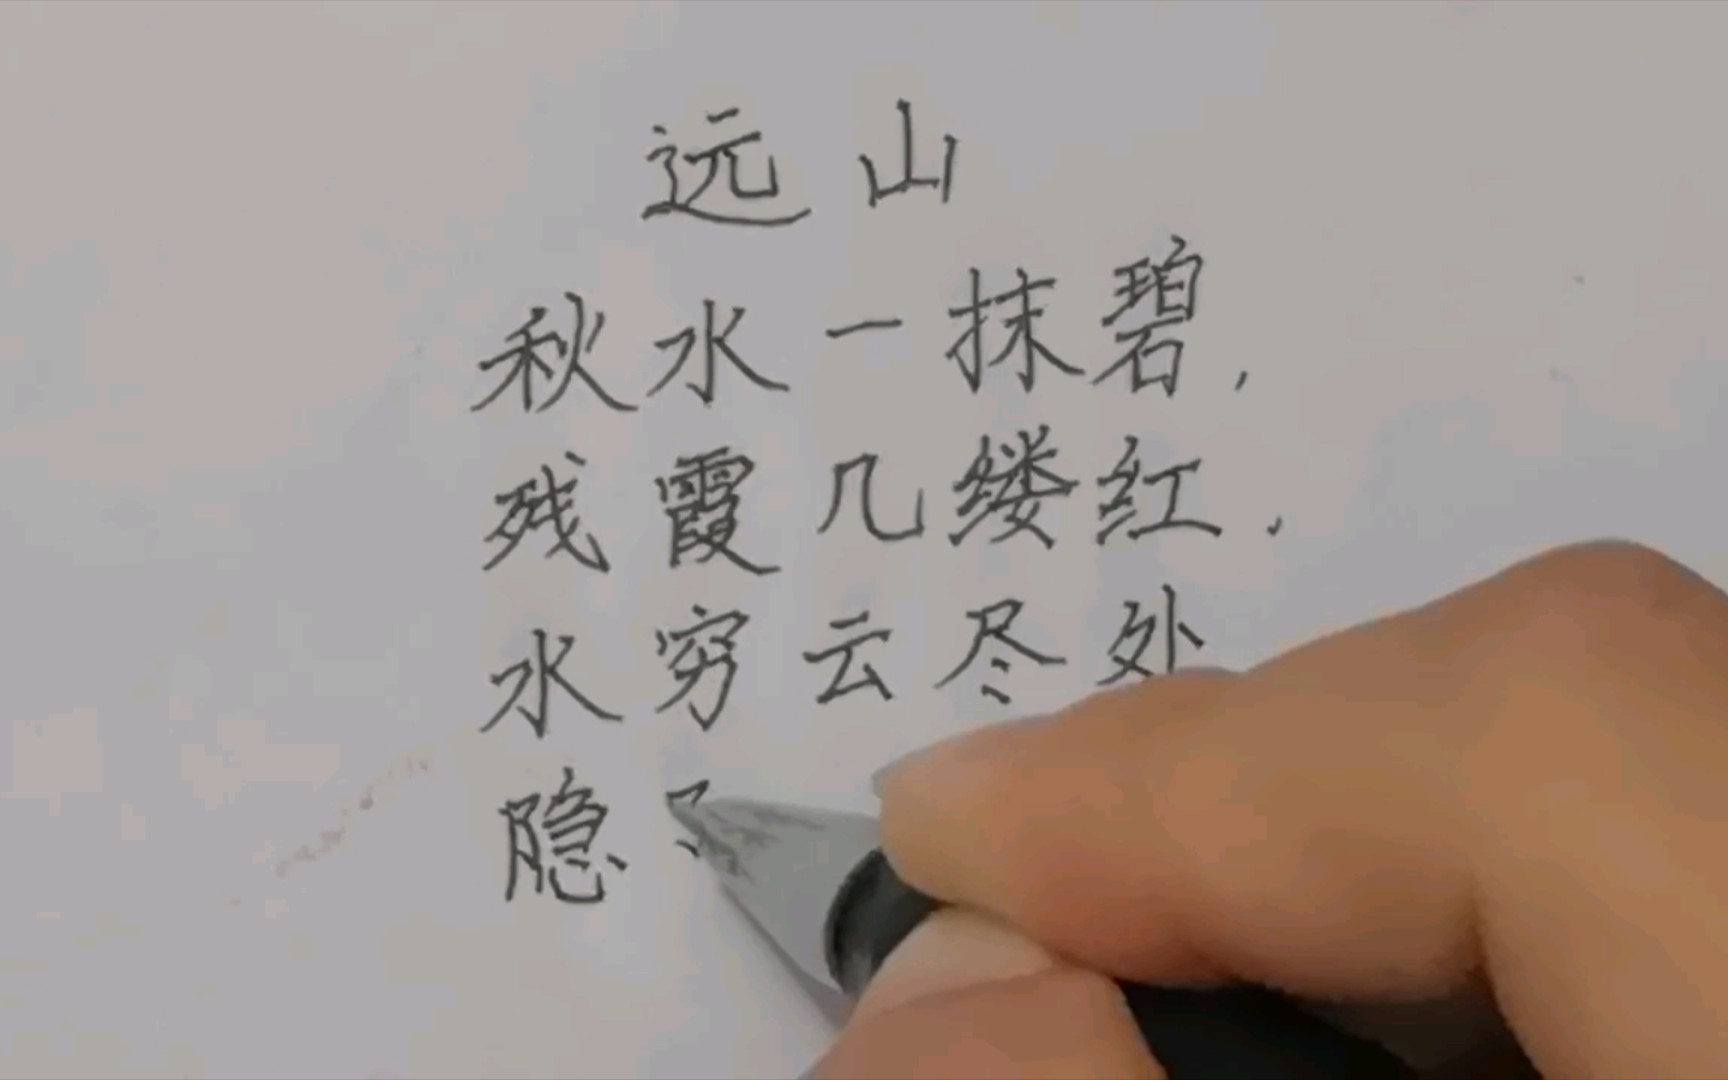 远山
秋水一抹碧,
残霞几缕红.
水穷云尽处
隐